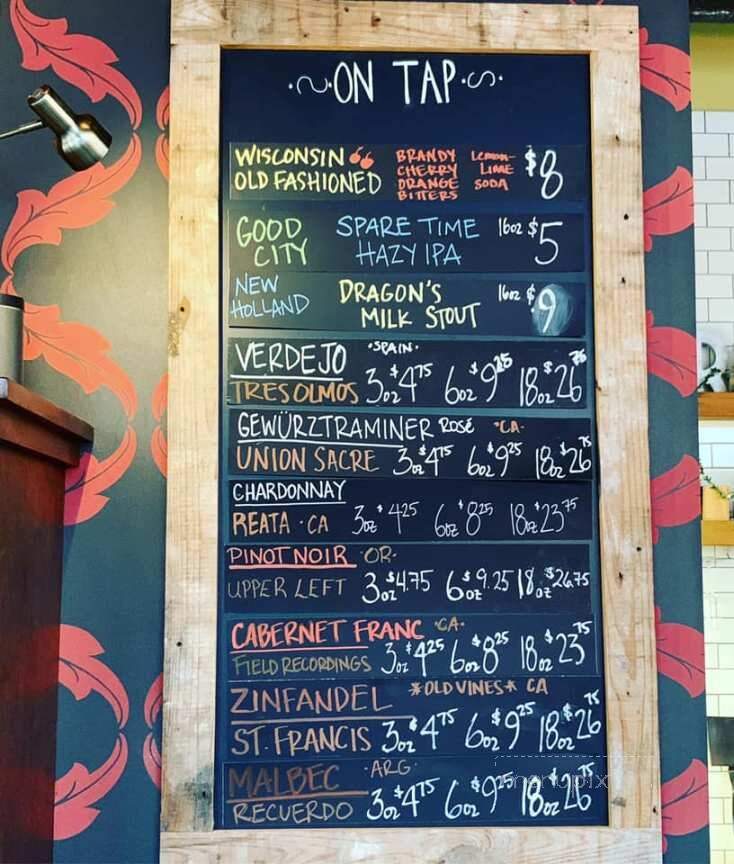 ON TAP
WISCONSIN BRANDY LEMON- $8
OLD FASHIONED CHERRY LIME
ORANGE SODA
BITTERS
GOOD SPARE TIME 16oz $5
CITY HAZY IPA
NEW DRAGON'S 16oz $9
HOLLAND MILK STOUT
VERDEJO ·SPAIN·
TRES OLMOS 3oz $4.75 6oz $9.25 18oz $26.75
GEWÜRZTRAMINER ROSÉ ·CA·
UNION SACRE 3oz $4.75 6oz $9.25 18oz $26.75
CHARDONNAY
REATA · CA 3oz $4.25 6oz $8.25 18oz $23.75
PINOT NOIR ·OR·
UPPER LEFT 3oz $4.75 6oz $9.25 18oz $26.75
CABERNET FRANC ·CA·
FIELD RECORDINGS 3oz $4.25 6oz $8.25 18oz $23.75
ZINFANDEL *OLD VINES* CA
ST. FRANCIS 3oz $4.75 6oz $9.25 18oz $26.75
MALBEC ·ARG·
RECUERDO 3oz $4.75 6oz $9.25 18oz $26.75
menupix